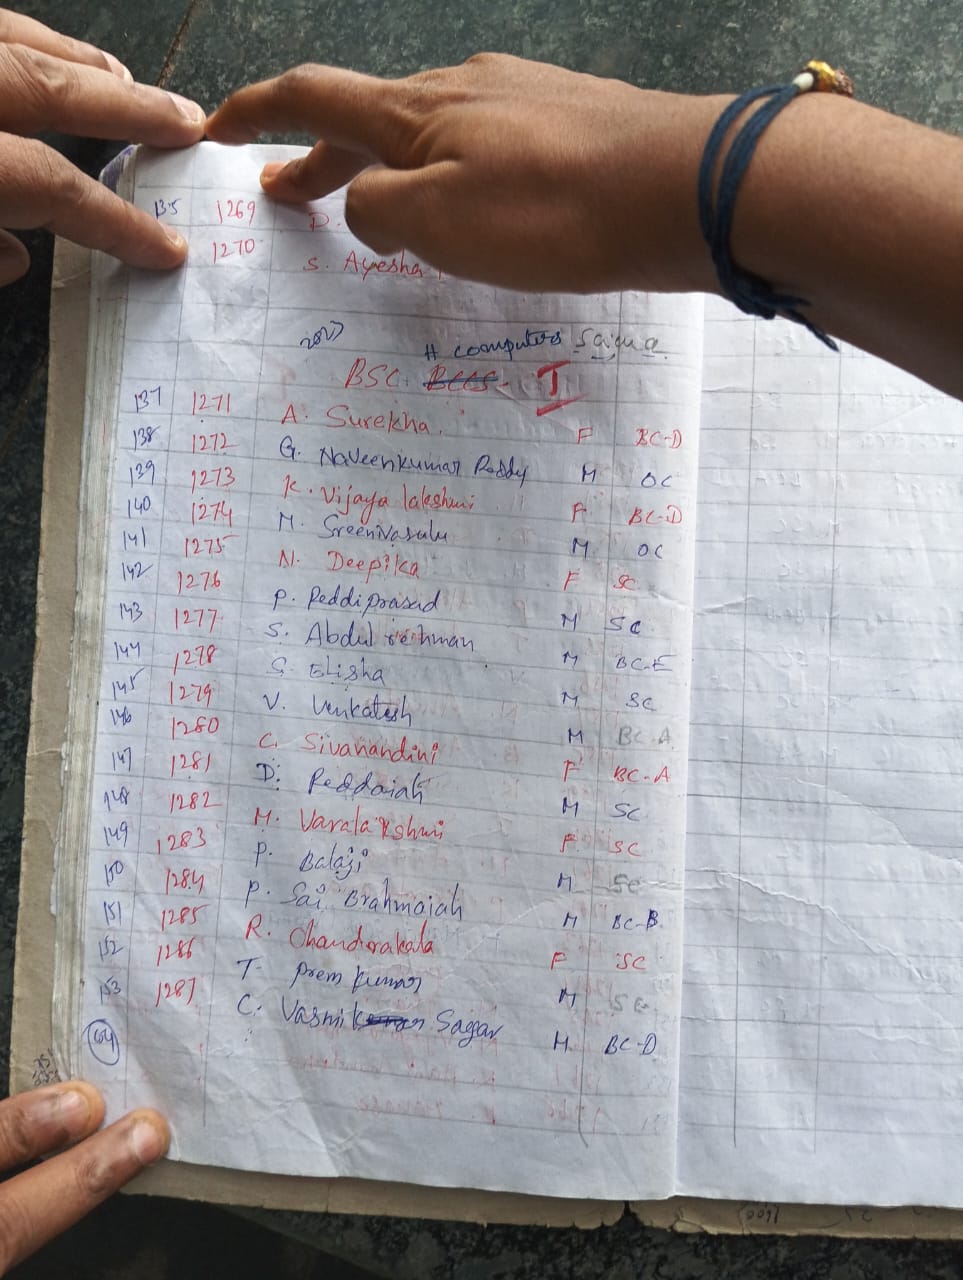 135 1269 D.
1270 S. Ayesha
2023
# computers Science
BSC. BCCS- I
137 1271 A. Surekha. F BC-D
138 1272 G. Naveenkumar Reddy M OC
139 1273 K. Vijaya lakshmi F BC-D
140 1274 M. Sreenivasulu M OC
141 1275 N. Deepika F SC
142 1276 P. Peddiprasad M SC
143 1277 S. Abdul rehman M BC-E
144 1278 S. Elisha M SC
145 1279 V. Venkatesh M BC-A
146 1280 C. Sivanandini F BC-A
147 1281 D. Peddaiah M SC
148 1282 M. Varalakshmi F SC
149 1283 P. Balaji M SC
150 1284 P. Sai Brahmaiah M BC-B
151 1285 R. Chandrakala F SC
152 1286 T. Prem kumar M SC
153 1287 C. Sagar M BC-D